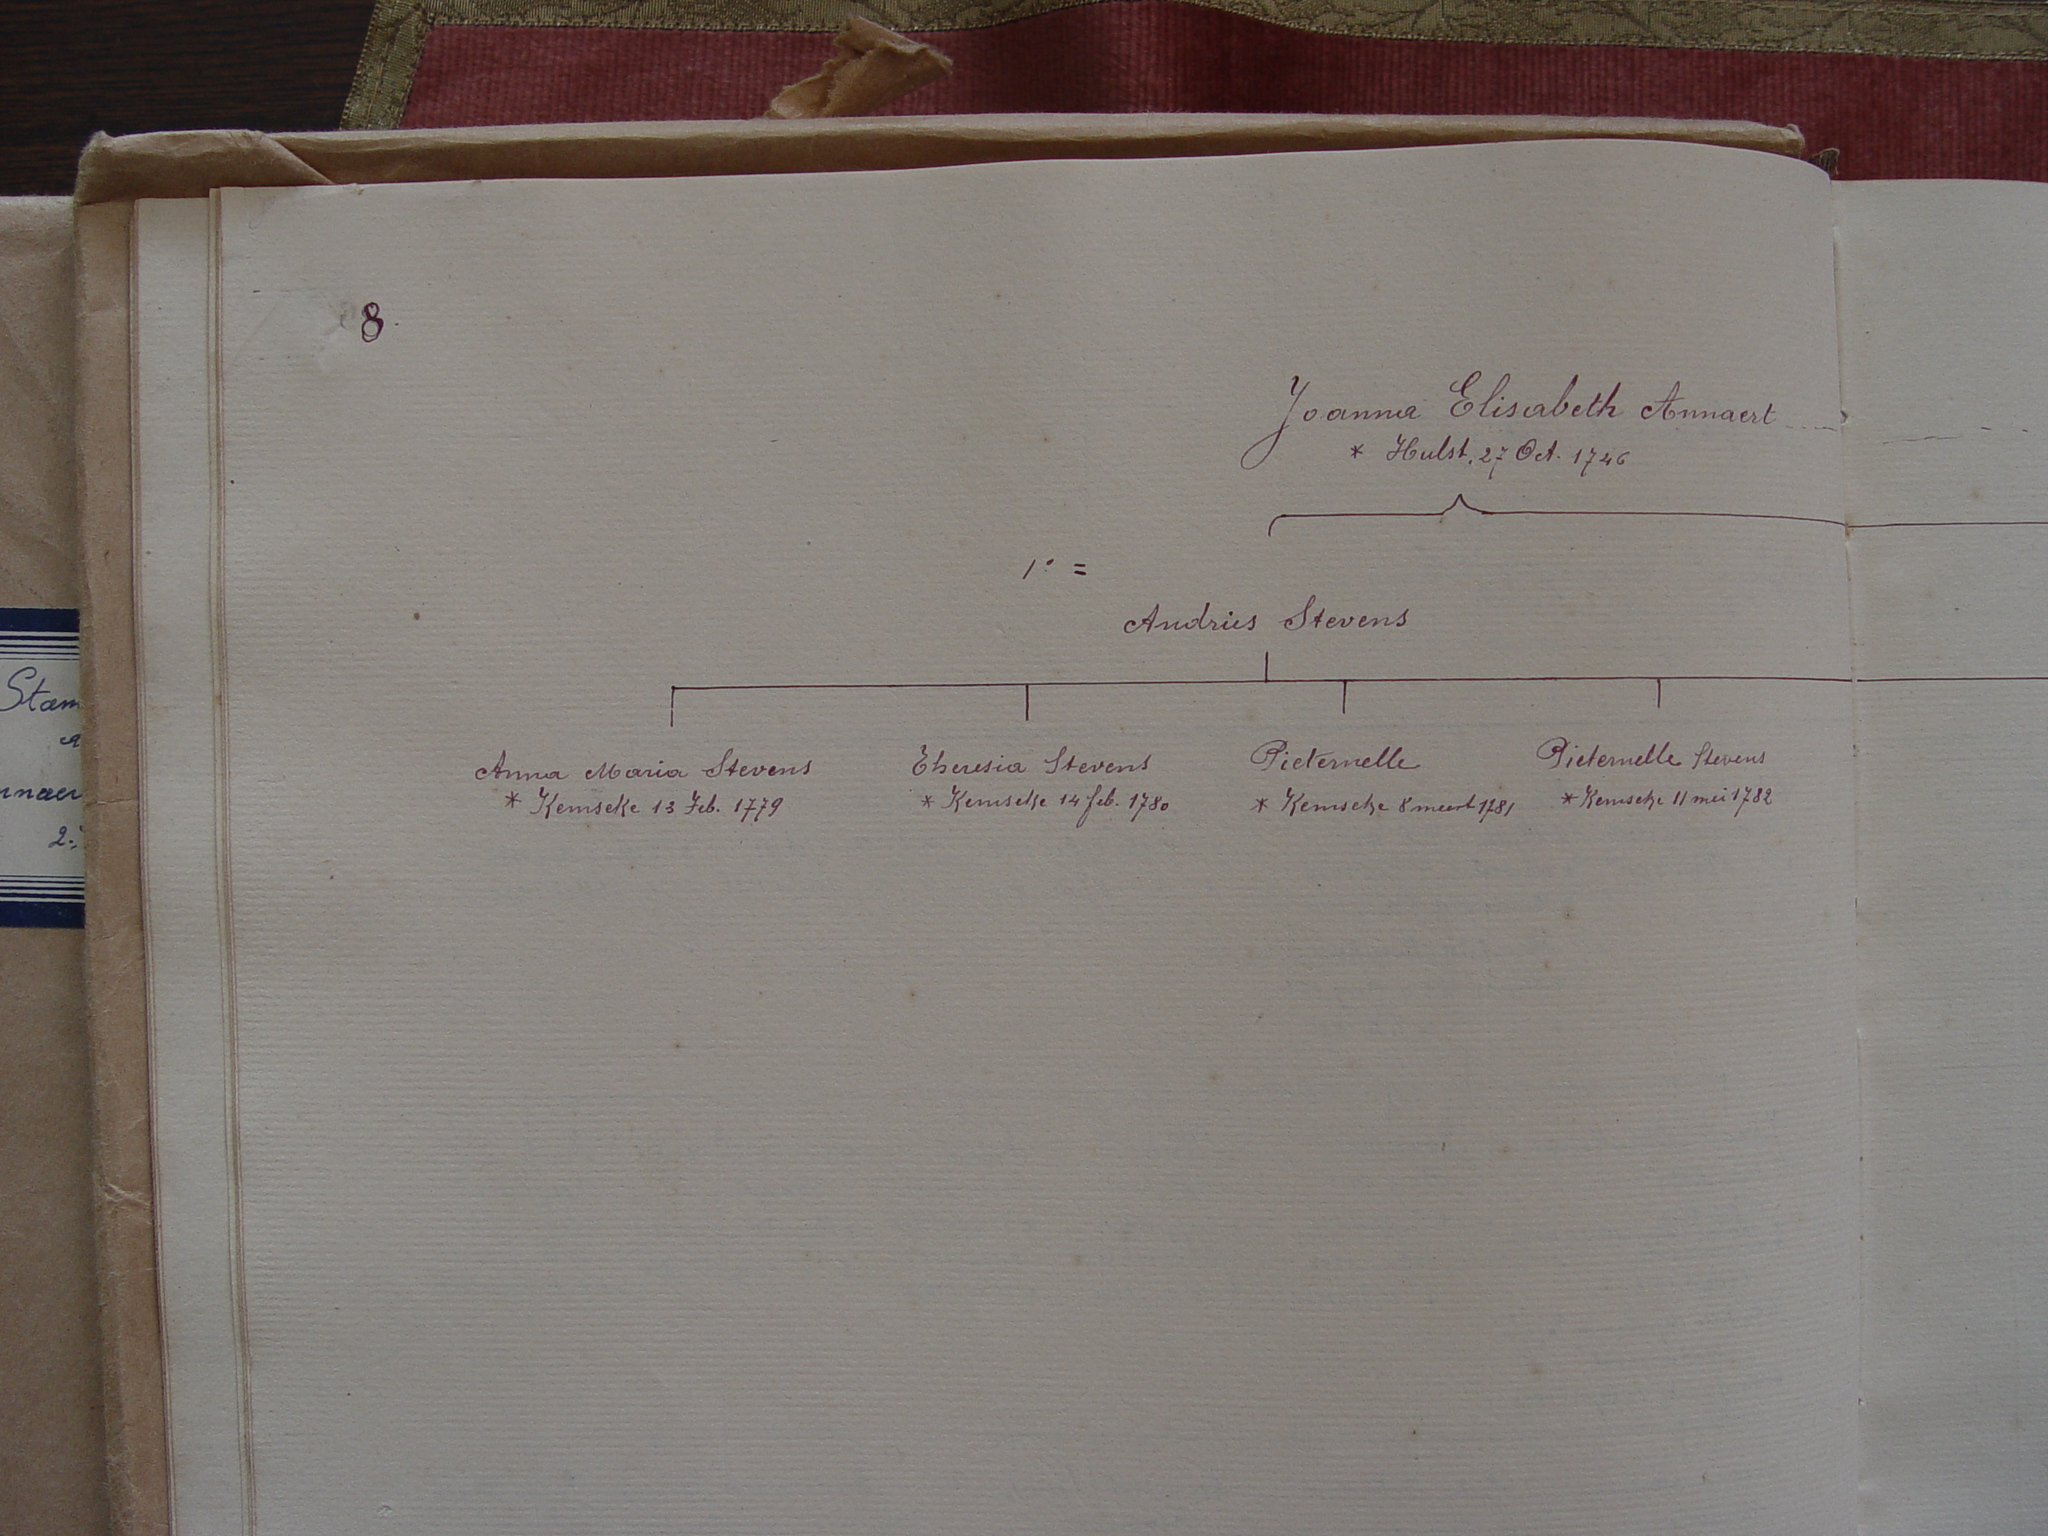 8.
Joanna Elisabeth Annaert
* Hulst, 27 Oct. 1746
1° =
Andries Stevens
Anna Maria Stevens
* Kemseke 13 Feb. 1779
Theresia Stevens
* Kemseke 14 feb. 1780
Pieternelle
* Kemseke 8 meert 1781
Pieternelle Stevens
* Kemseke 11 mei 1782
Stam
2.